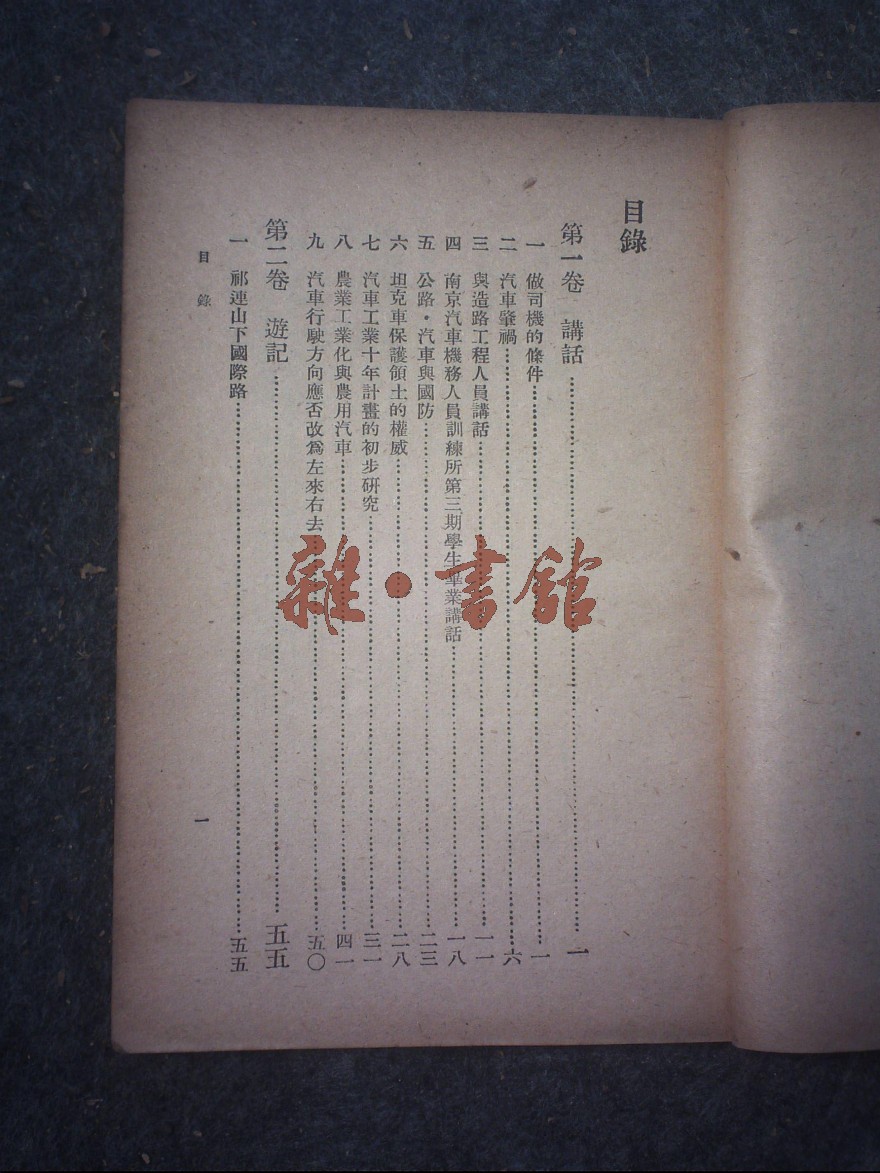 目錄
第一卷　講話……一
一　做司機的條件……一
二　汽車肇禍……六
三　與造路工程人員講話……一一
四　南京汽車機務人員訓練所第三期學生畢業講話……一八
五　公路・汽車與國防……二三
六　坦克車保護領土的權威……二八
七　汽車工業十年計畫的初步研究……三一
八　農業工業化與農用汽車……四一
九　汽車行駛方向應否改爲左來右去……五〇
第二卷　遊記……五五
一　祁連山下國際路……五五
目錄
一
雜・書館